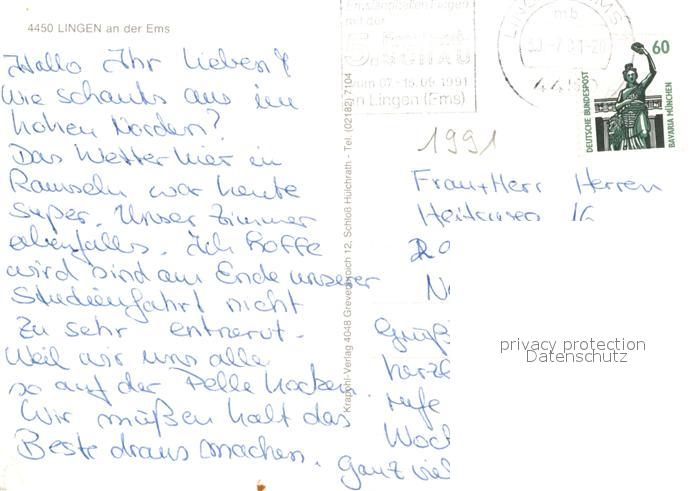 4450 LINGEN an der Ems
Hallo Ihr Lieben!
Wie schauts aus im
hohen Norden?
Das Wetter hier in
Ramseln war heute
super. Unser Zimmer
ebenfalls. Ich hoffe
wird sind am Ende unserer
Studienfahrt nicht
zu sehr entnervt -
Weil wir uns alle
so auf der Pelle hocken.
Wir müßen halt das
Beste draus machen.
Grüß
herzl
rufe
Woch
Ganz viel
Krapohl-Verlag 4048 Grevenbroich 12, Schloß Hülchrath - Tel. (02182) 7104
Emsländhallen Lingen
mit der
5. SCHAU
vom 07.-15.09.1991
in Lingen (Ems)
LINGEN EMS
mb
4450
60
DEUTSCHE BUNDESPOST
BAVARIA MÜNCHEN
1991
Frau + Herr Herren
privacy protection
Datenschutz